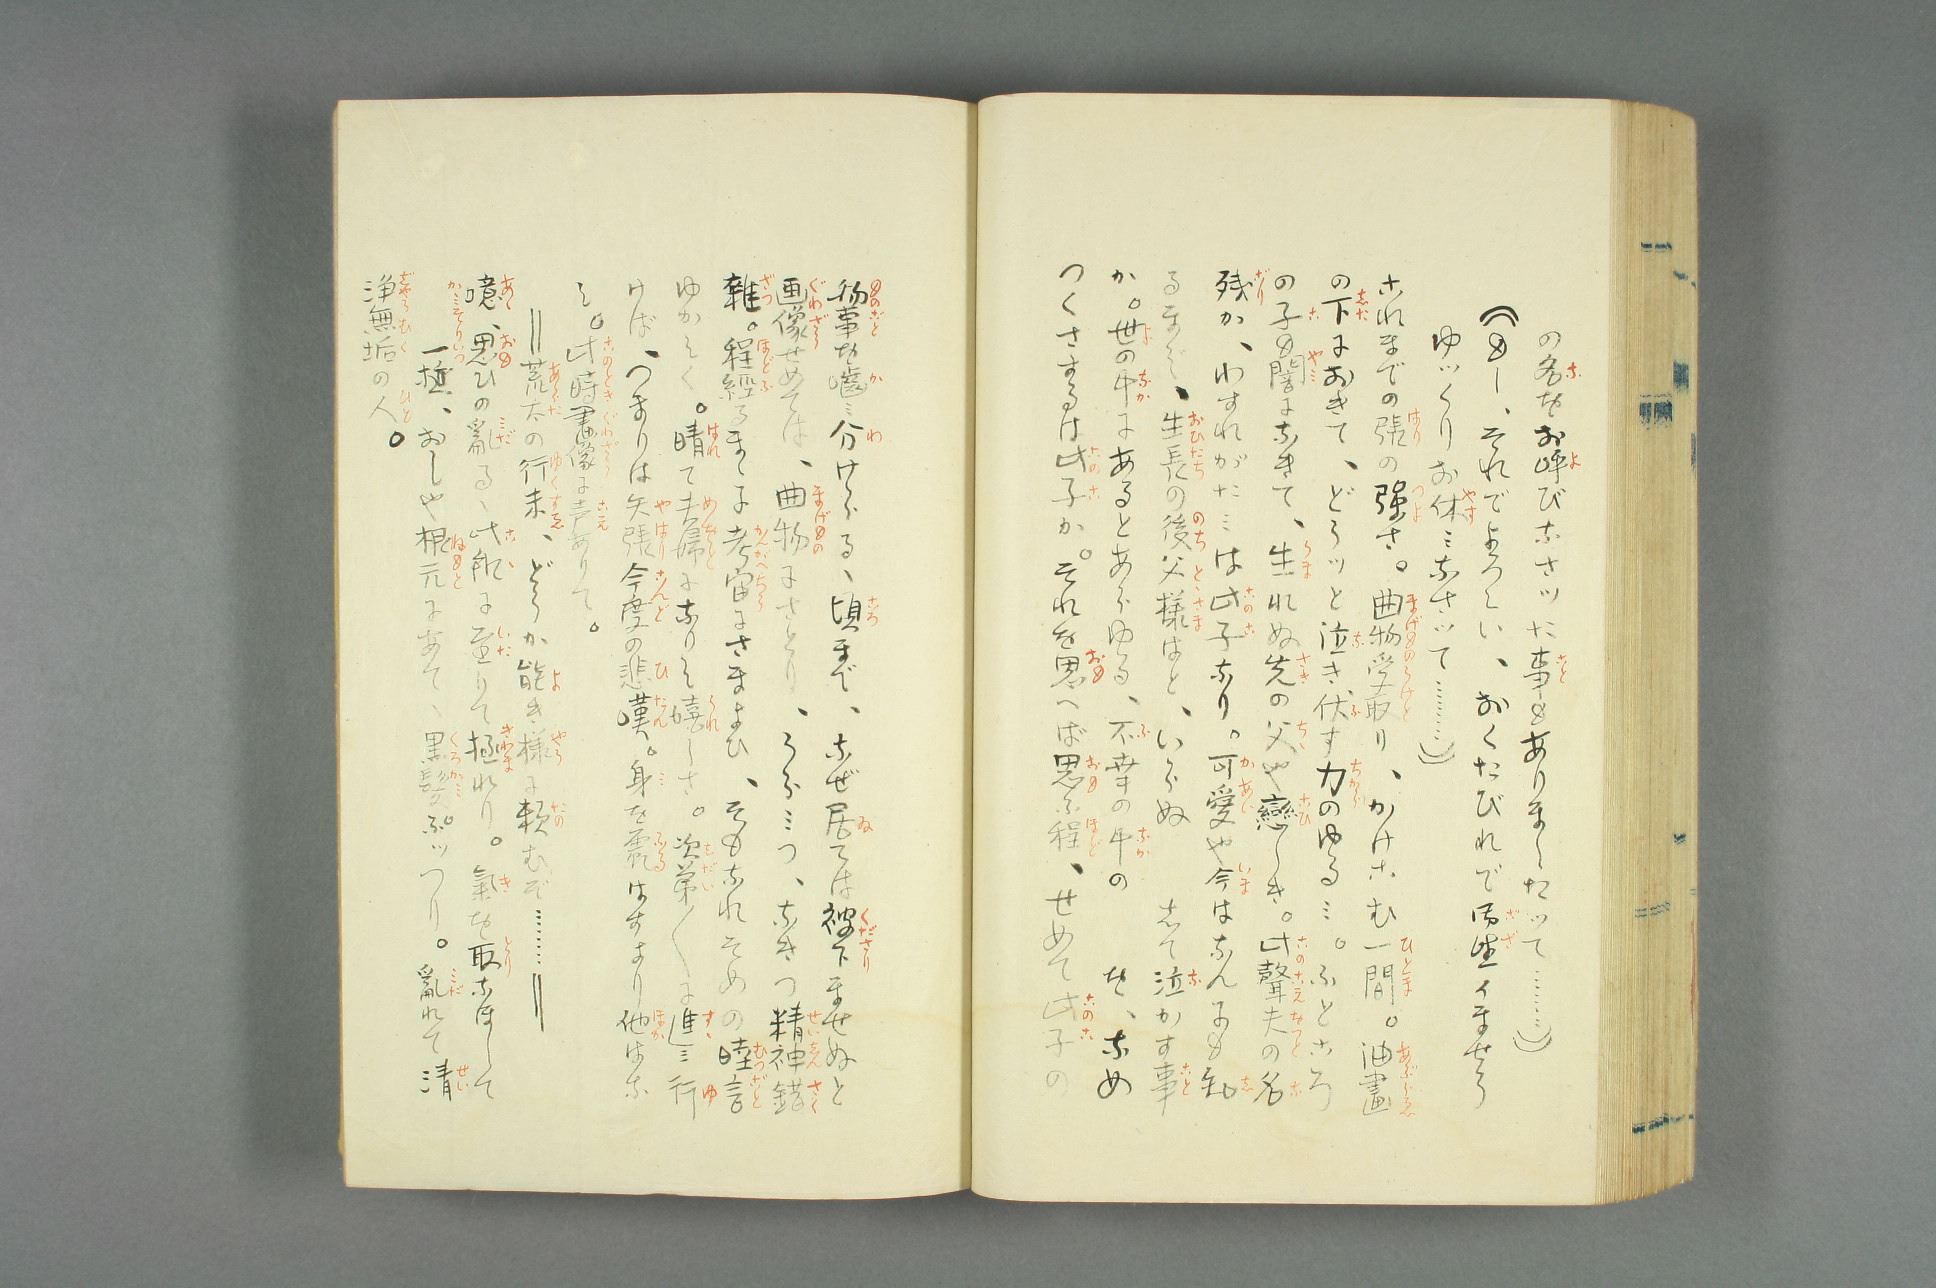 の名をお呼びなさッた事もありましたッて…………))
((もし、それでよろしい、おくたびれで御坐イませう
ゆッくりお休みなさッて…………))
これまでの張の強さ。曲物受取り、かけこむ一間。油畫
の下におきて、どうッと泣き伏す力のゆるみ。ふところ
の子も闇になきて、生れぬ先の父や戀しき。此聲夫の名
残か、わすれがたみは此子なり。可愛や今はなんにも知
るまじ、生長の後父様はと、いらぬ 志て泣かす事
か。世の中にあるとあらゆる、不幸の中の を、なめ
つくさするは此子か。それを思へば思ふ程、せめて此子の
物事を噛み分けらるゝ頃まで、なぜ居ては被下ませぬと
画像せめては、曲物にさとり、うらみつ、なきつ精神錯
雜。程經るまゝに考宙にさまよひ、そもなれそめの睦言
ゆかしく。晴て夫婦になりし嬉しさ。次第〱に進み行
けば、つまりは矢張今度の悲嘆。身を震はすより他はな
し。此時畫像に声ありて。
‖荒太の行末、どうか能き様に頼むぞ………‖
噫、思ひの亂るゝ此処に至りて極れり。氣を取なほして
一挺、おしや根元にあて、黒髪。ぷッつり。亂れて清
浄無垢の人。